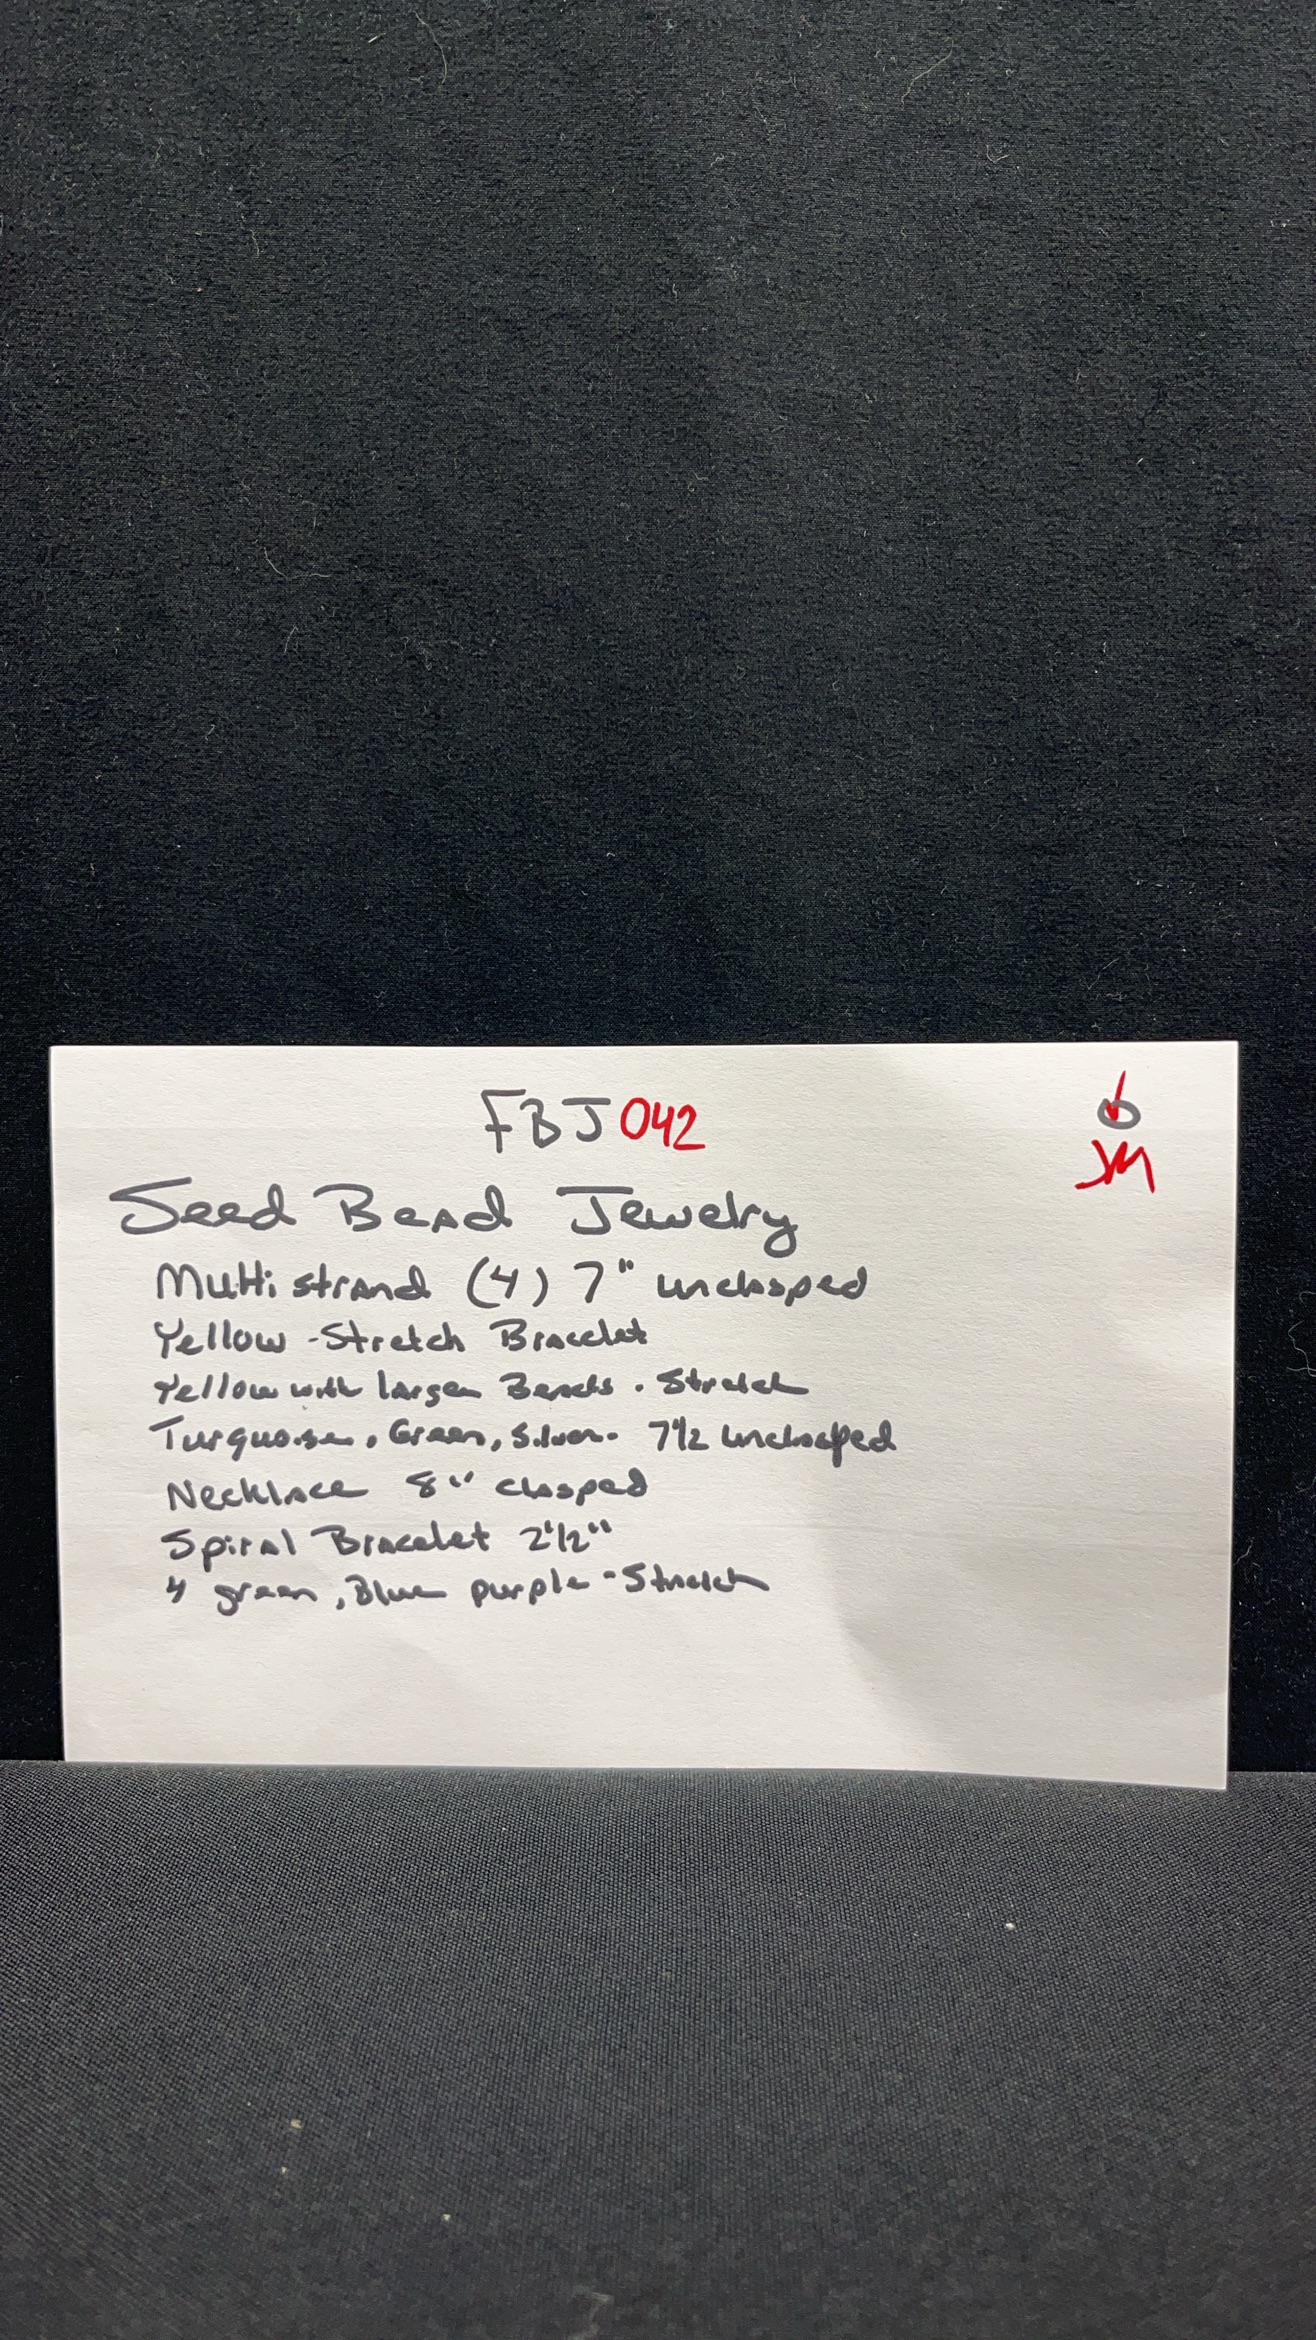 FBJ042
JM
Seed Bead Jewelry
Multi strand (4) 7" unclasped
Yellow - Stretch Bracelet
Yellow with larger Beads. Stretch
Turquoise, Green, Silver. 7 1/2 unclasped
Necklace 8" clasped
Spiral Bracelet 2 1/2"
4 green, Blue purple - Stretch